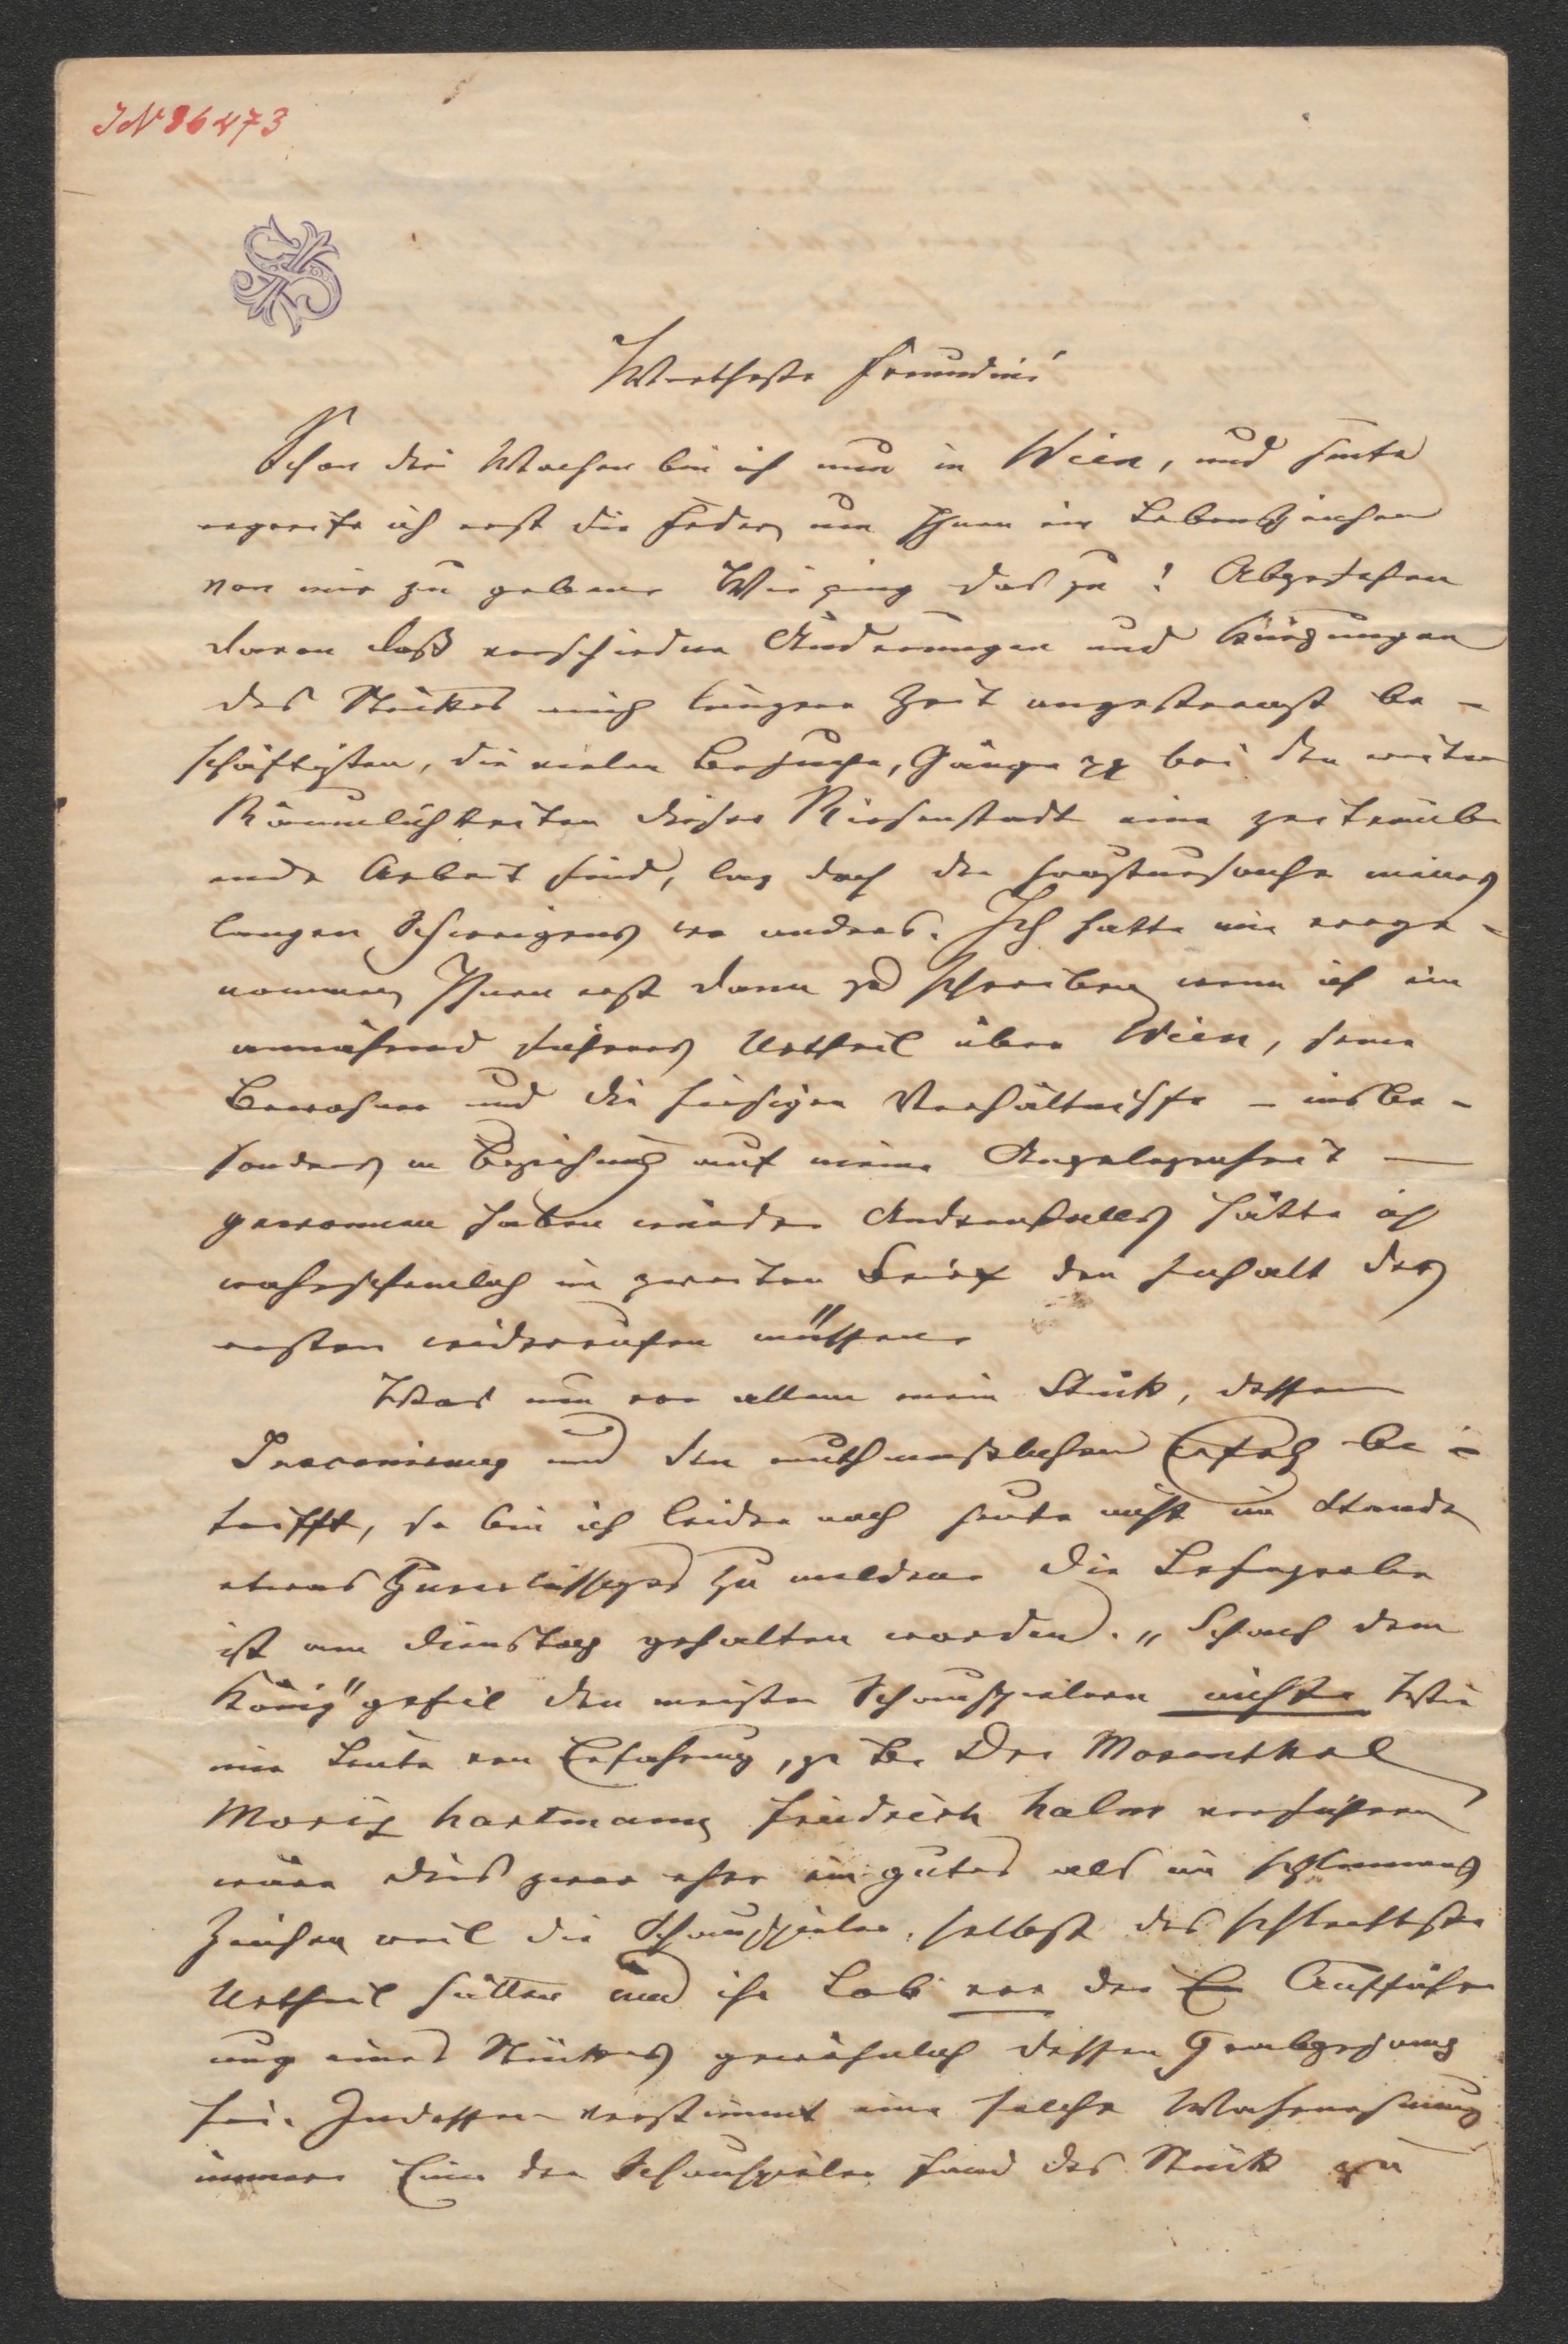 IN 36473
Wertheste Freundin!
Schon drei Wochen bin ich nun in Wien, und heute
ergreife ich erst die Feder, um Ihnen ein Lebenszeichen
von mir zu geben. Wie ging das zu! Abgesehen
davon daß verschiedene Änderungen und Kürzungen
des Stückes mich längere Zeit angestrengt be-
schäftigten, die vielen Besuche, Gänge pp bei den weiten
Räumlichkeiten dieser Riesenstadt eine zeitraub-
ende Arbeit sind, lag doch die Hauptursache meines
langen Schweigens wo anders. Ich hatte mir vorge-
nommen, Ihnen erst dann zu schreiben, wenn ich ein
annähernd sicheres Urtheil über Wien, seine
Bewohner und die hiesigen Verhältnisse – insbe-
sonders in Beziehung auf meine Angelegenheit –
gewonnen haben würde. Andrenfalls hätte ich
wahrscheinlich im zweiten Brief den Inhalt des
ersten widerrufen müssen.
Was nun vor allem mein Stück, dessen
Inscenirung und den muthmaßlichen Erfolg be-
trifft, so bin ich leider noch heute nicht im Stande
etwas Zuverlässiges zu melden. Die Leseprobe
ist am Dienstag gehalten worden. „Schach dem
König" gefiel den meisten Schauspielern nicht. Wie
mir Leute von Erfahrung, z. B. Dr. Mosenthal
Moriz Hartmann, Friedrich Halm versichern
wäre dies zwar eher ein gutes als ein schlimmes
Zeichen weil die Schauspieler selbst das schlechteste
Urtheil hätten und ihr Lob vor der E Aufführ
ung eines Stückes gewöhnlich dessen Grabgesang
sei. Indessen verstimmt eine solche Wahrnehmung
immer. Einer der Schauspieler fand das Stück zu